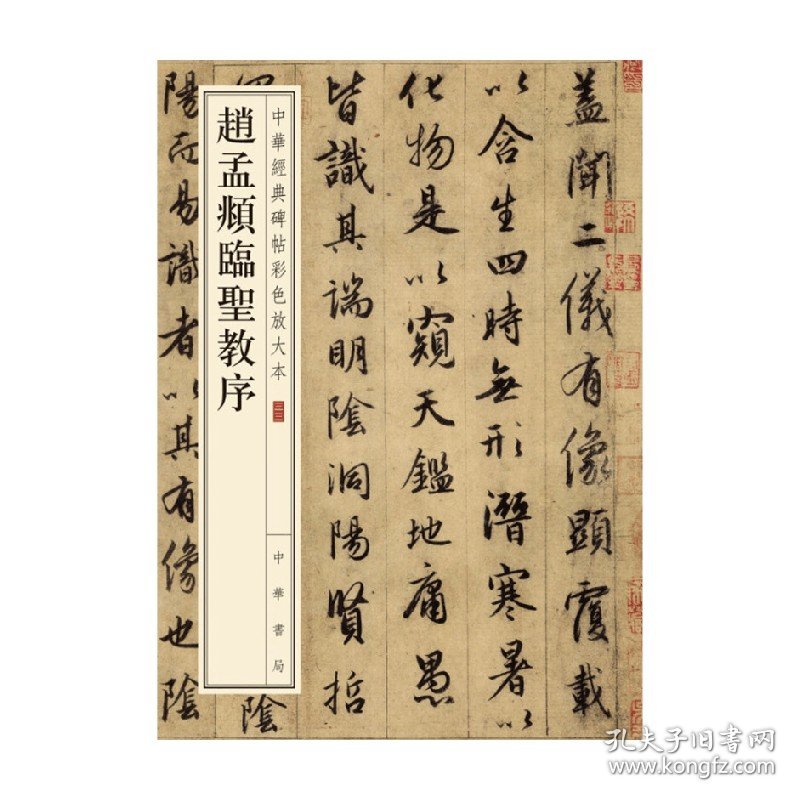 蓋聞二儀有像顯覆載
以含生四時無形潛寒暑以
化物是以窺天鑑地庸愚
皆識其端明陰洞陽賢哲
陰
陽而易識者以其有像也陰
中華經典碑帖彩色放大本
三三
趙孟頫臨聖教序
中華書局
孔夫子旧书网
www.kongfz.com